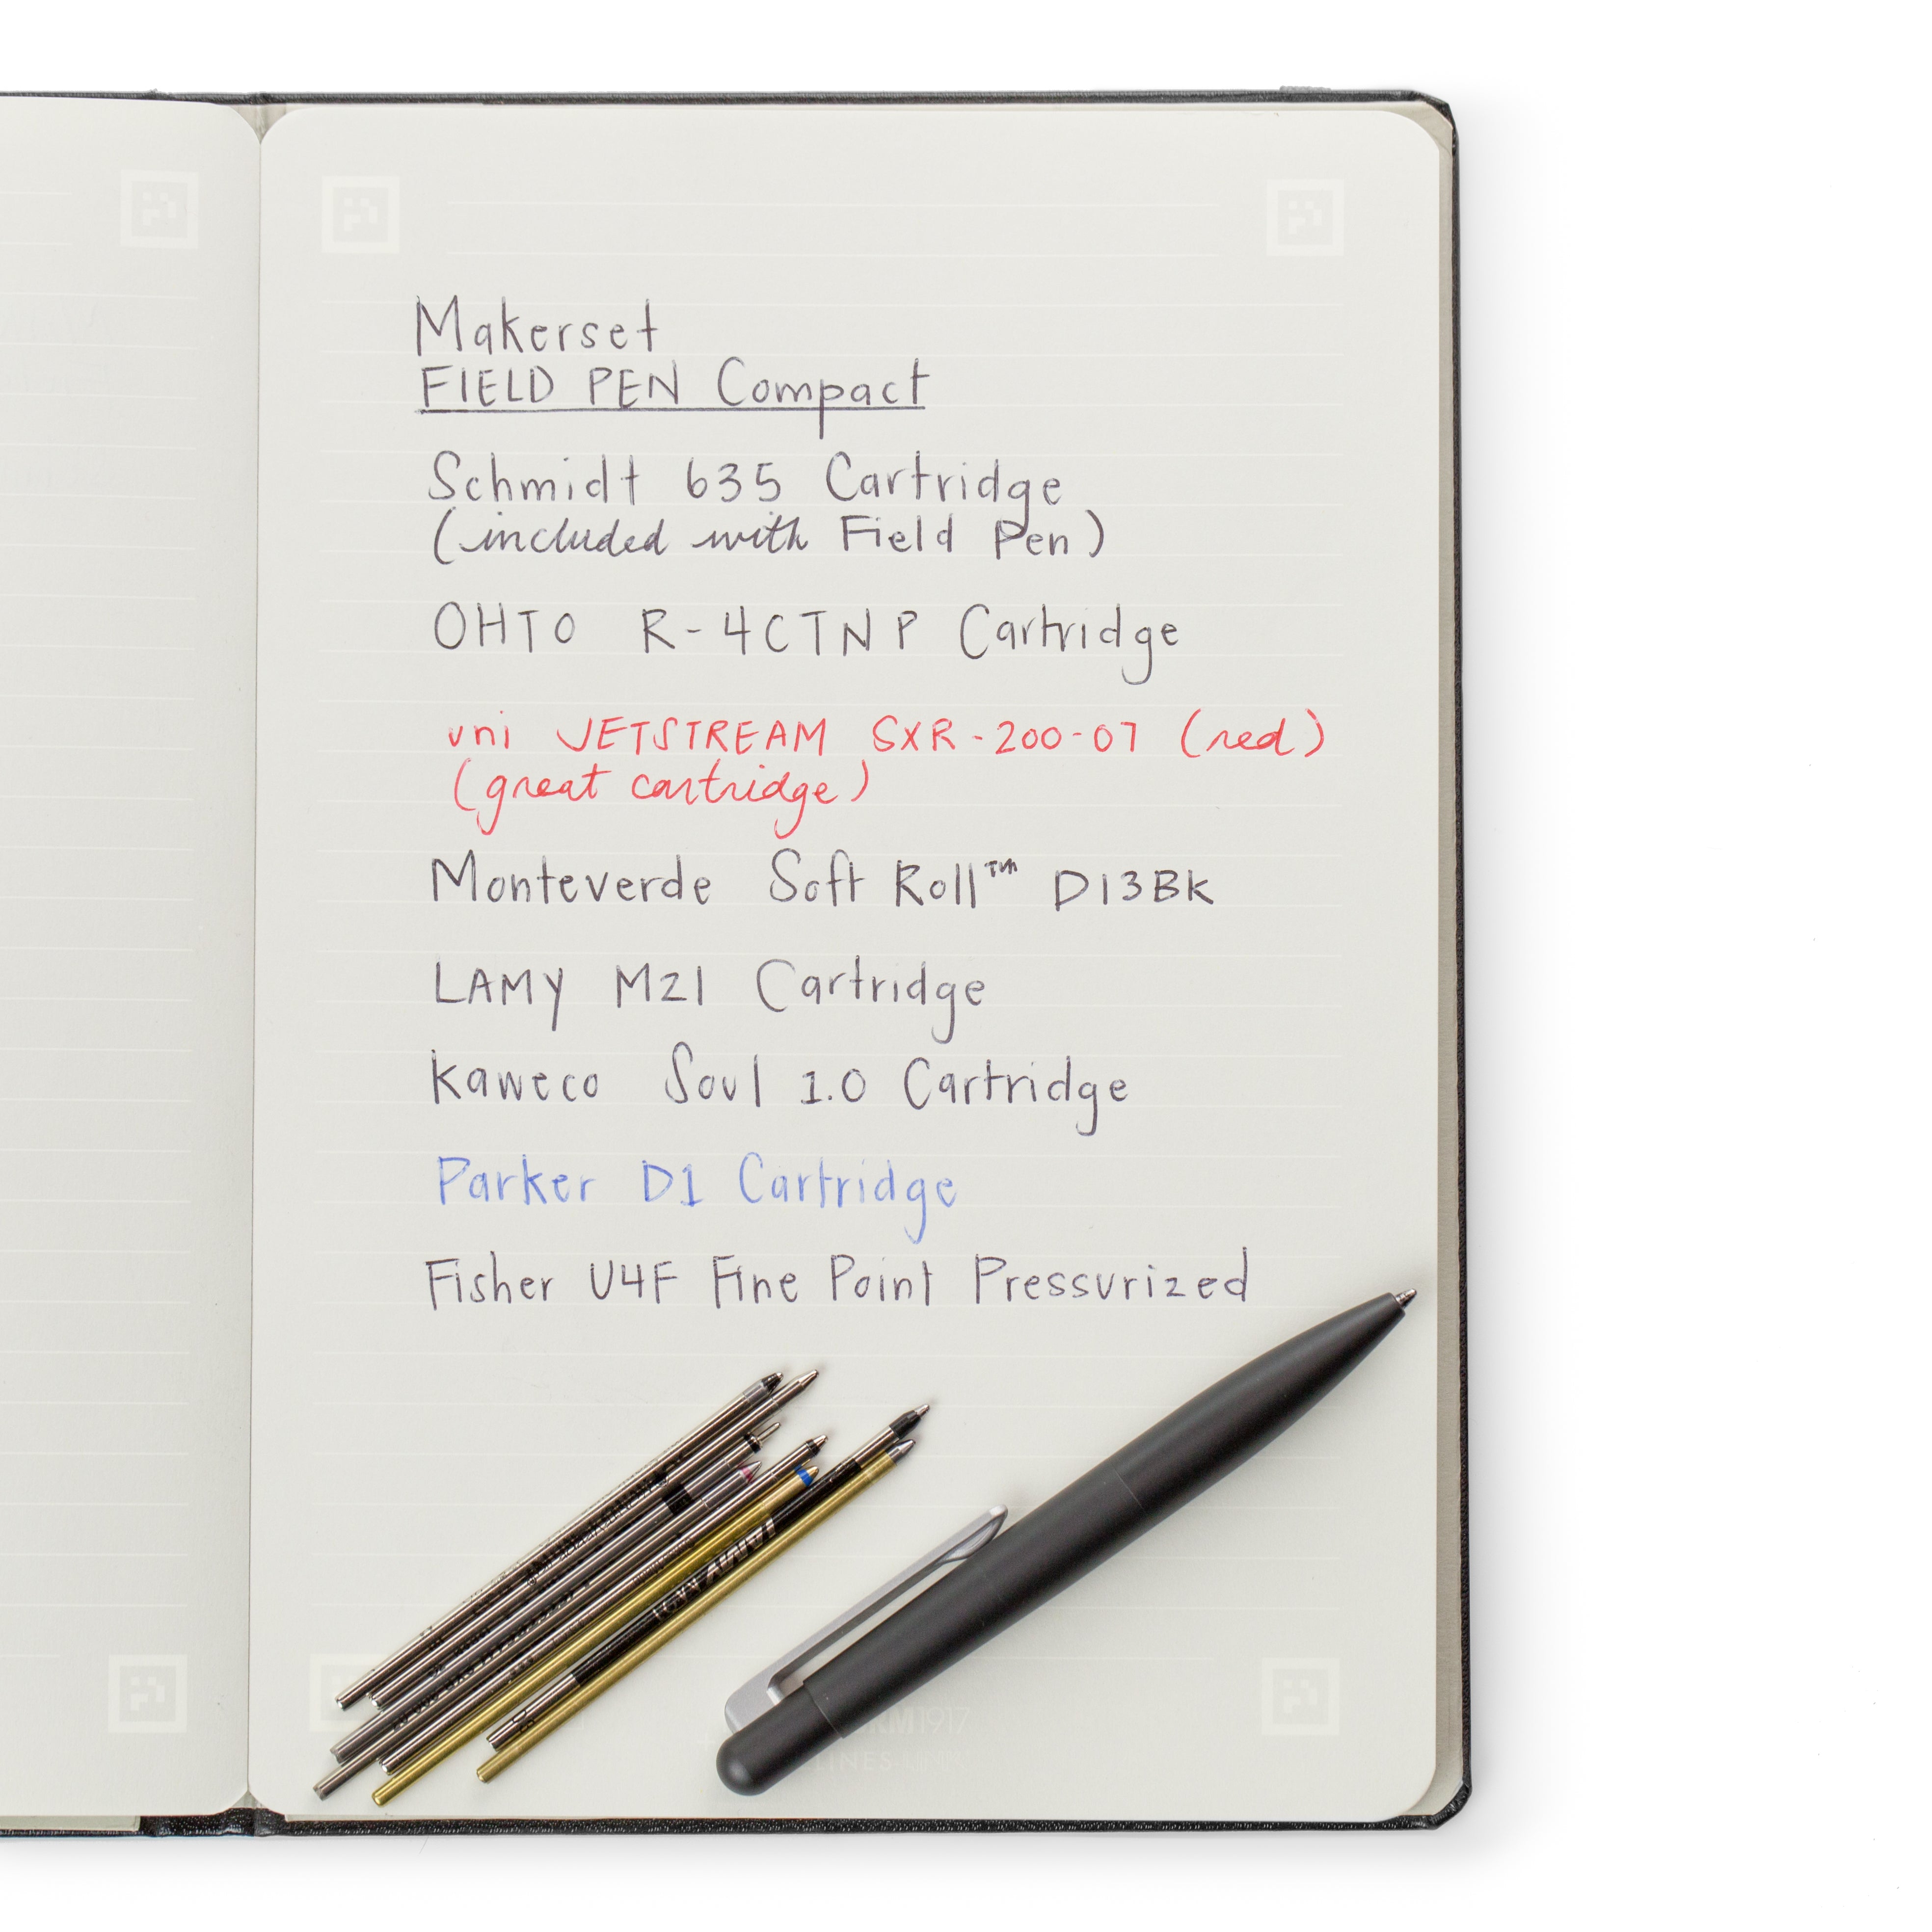 Makerset
FIELD PEN Compact
Schmidt 635 Cartridge
(included with Field Pen)
OHTO R-4CTNP Cartridge
uni JETSTREAM SXR-200-07 (red)
(great cartridge)
Monteverde Soft Roll™ D13BK
LAMY M21 Cartridge
Kaweco Soul 1.0 Cartridge
Parker D1 Cartridge
Fisher U4F Fine Point Pressurized
LAMY
RM1917
LINES